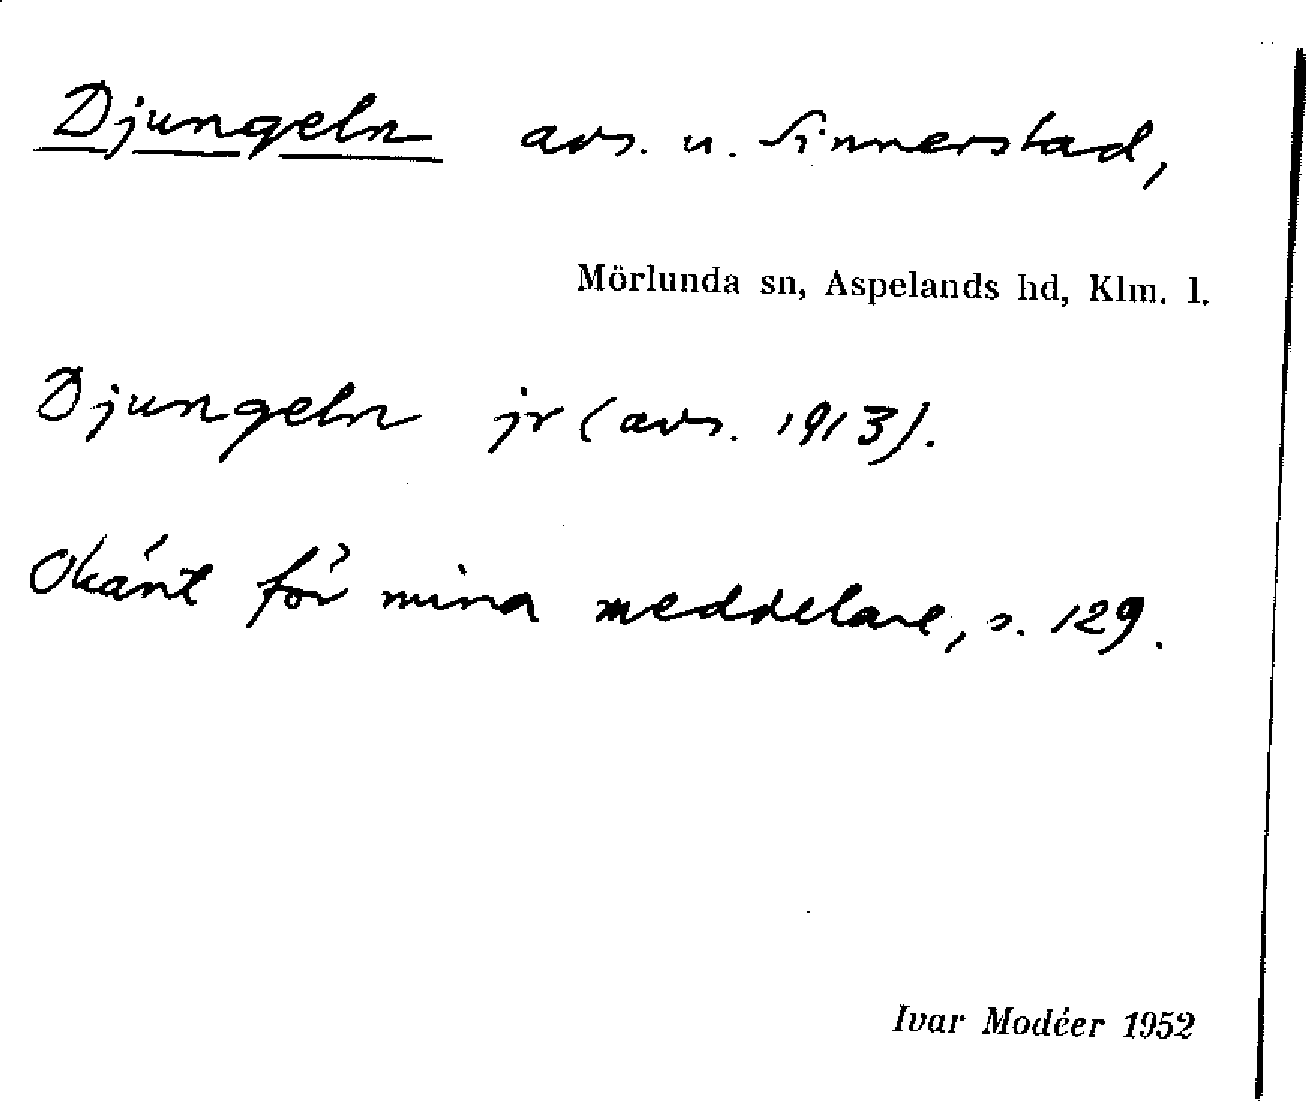 Djungeln avs. u. Sinnerstad,
Mörlunda sn, Aspelands hd, Klm. l.
Djungeln jr (avs. 1913).
Okänt för mina meddelare, s. 129.
Ivar Modéer 1952